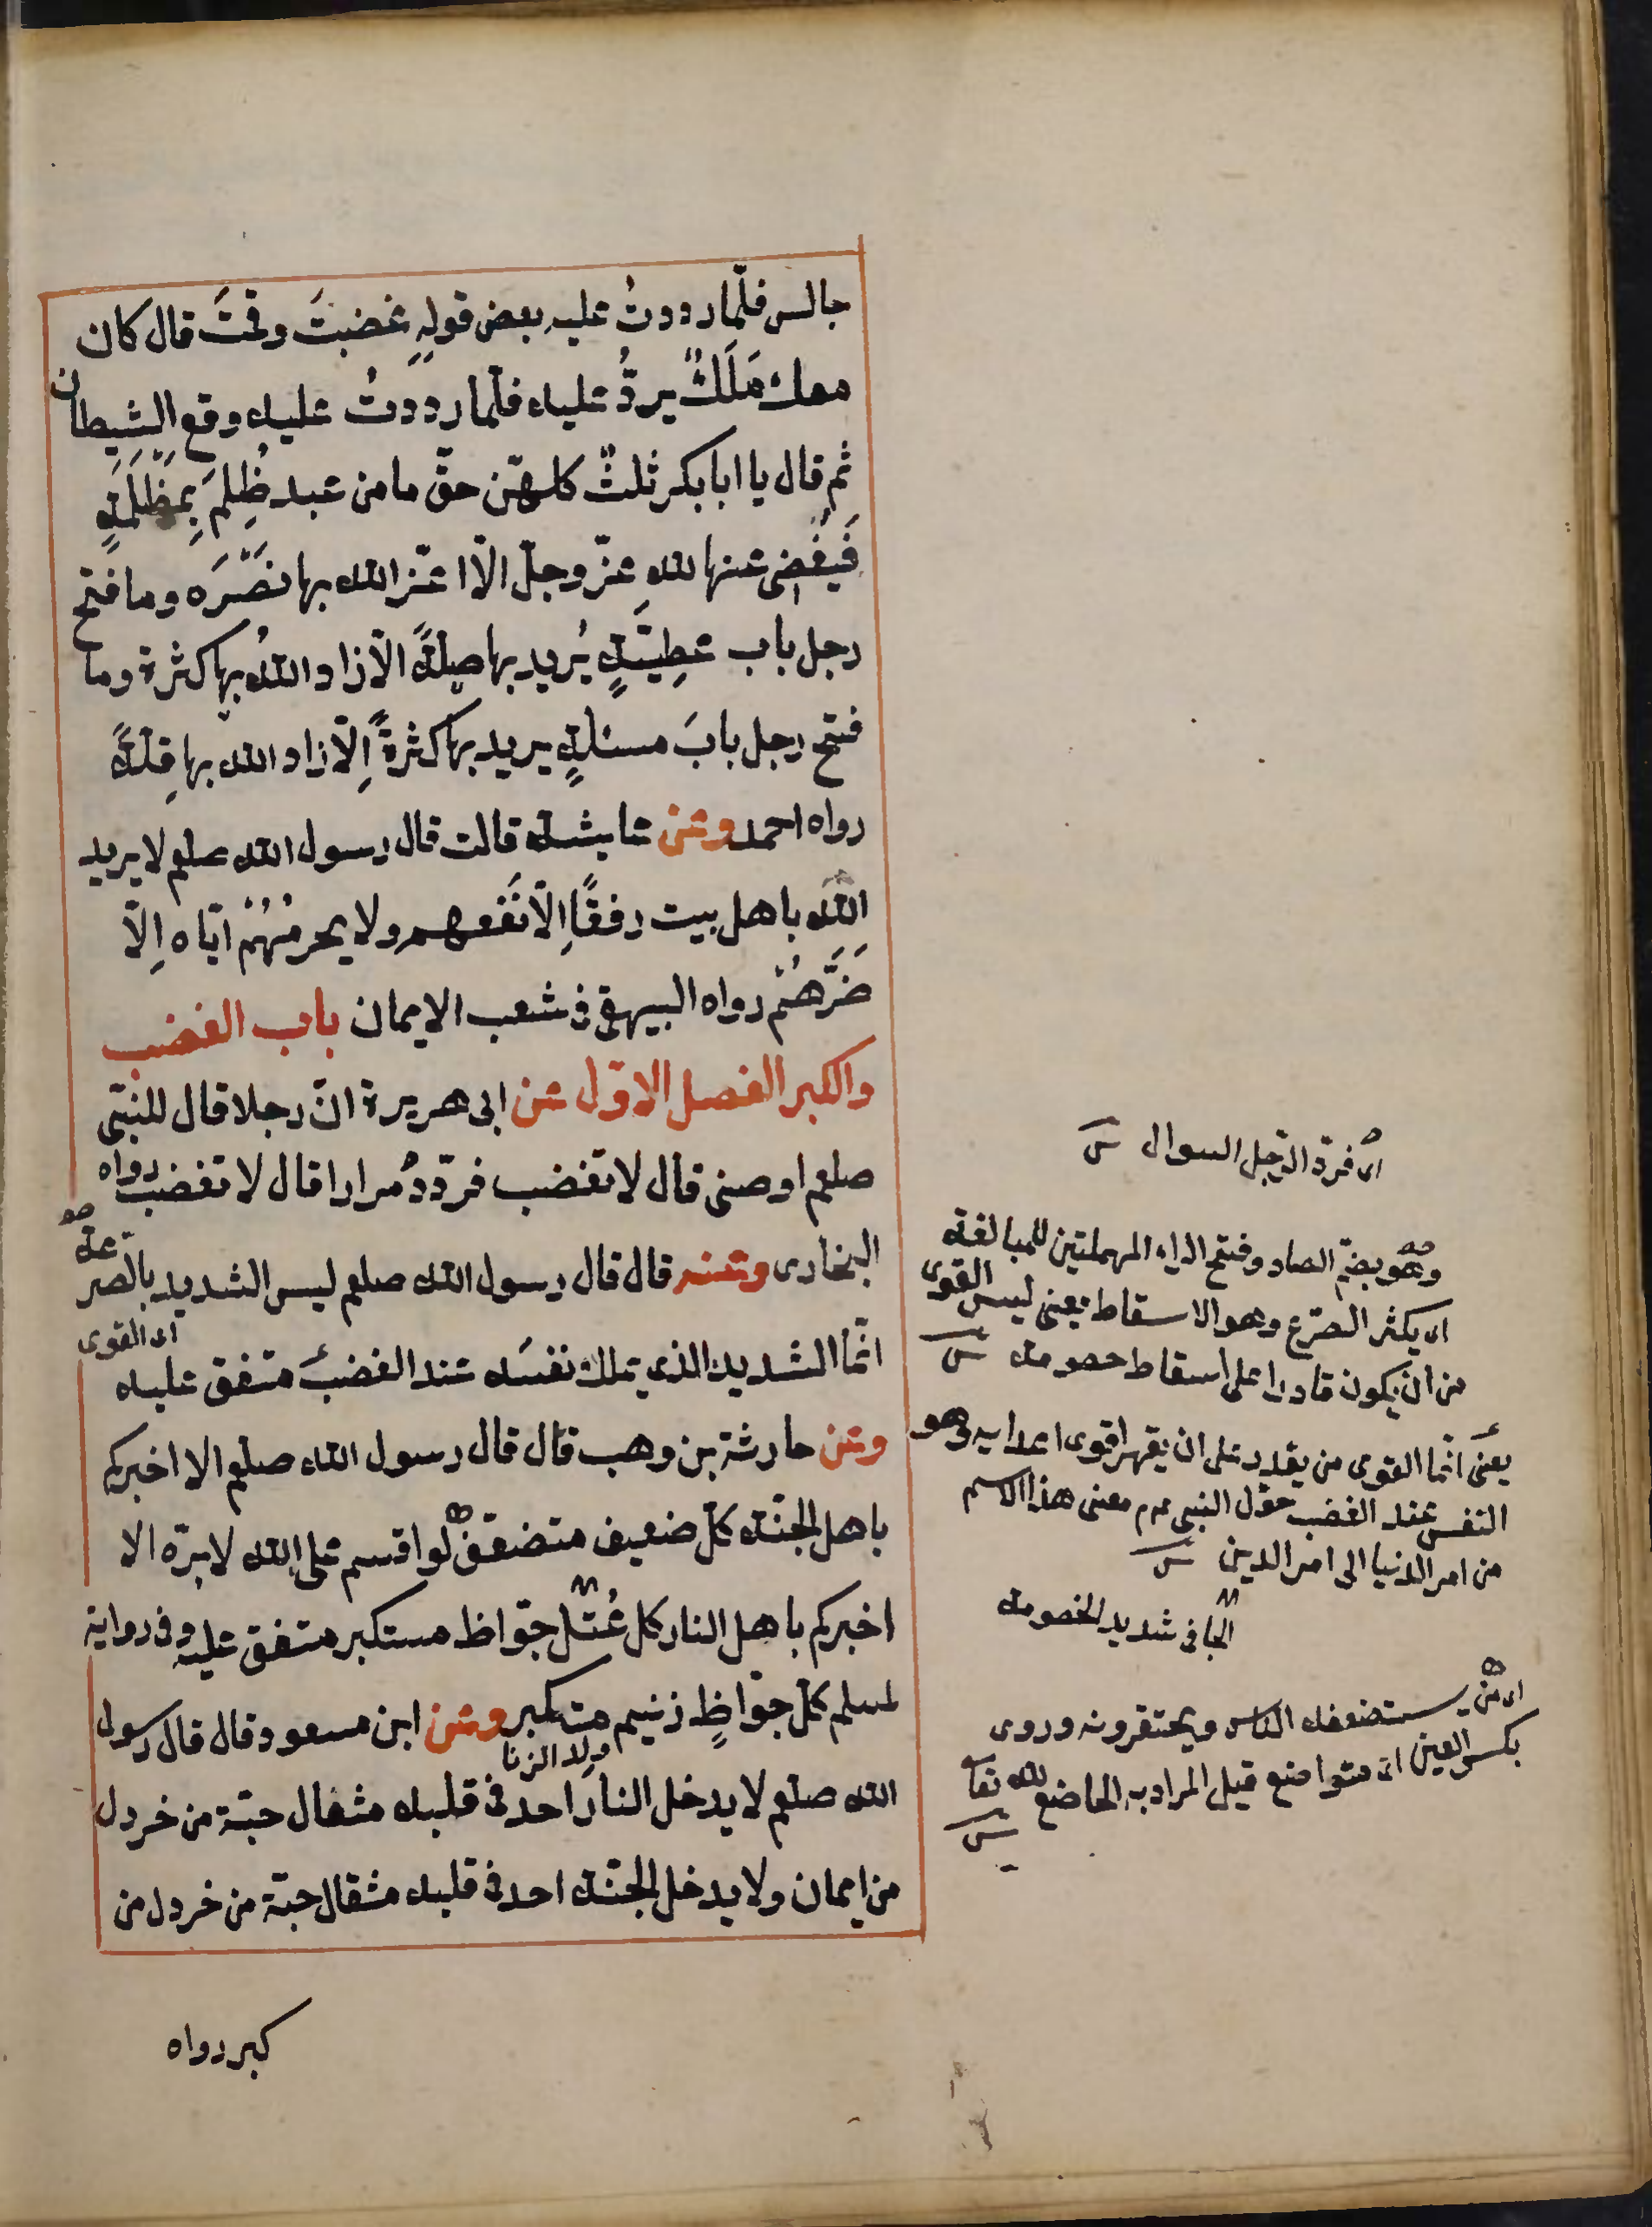 جالس فلمّا رددتُ عليه بعض قولِهِ غضبتَ وقمتَ قال كان
معك مَلَكٌ يردُّ عليه فلمّا رددتُ عليه وقع الشيطان
ثم قال يا ابا بكر ثلثٌ كلهنّ حقّ ما من عبد ظُلِمَ بِمَظْلَمَةٍ
فَيُغْضِى عنها للهِ عزّ وجلّ الّا اعزّ الله بها نَصْرَه وما فتح
رجل باب عطِيّةٍ يُريد بها صِلَةً الّا زاد اللهُ بها كثرة وما
فتح رجل بابَ مسئلةٍ يريد بها كثرةً اِلّا زاد الله بها قِلّةً
رواه احمد وعن عايشة قالت قال رسول الله صلعم لا يريد
اللهَ باهل بيت رفقًا اِلّا نَفَعهم ولا يحرمُهُمْ ايّاه اِلّا
ضَرَّهُمْ رواه البيهقى فى شعب الايمان باب الغضب
والكبر الفصل الاوّل عن ابى هريرة انّ رجلا قال للنبّى
صلعم اوصنى قال لا تغضب فردّدُ مرارا قال لا تغضب رواه
البخارى وعنه قال قال رسول الله صلعم ليس الشديد بالصرعة
اى القوى
انّما الشديد الذى يملك نفسَه عند الغضب متفق عليه
وعن حارثة بن وهب قال قال رسول الله صلعم الا اخبركم
باهل الجنّة كلّ ضعيف متضعّفٍ لو اقسم على الله لابرّه الا
اخبركم باهل النار كل عُتلّ جوّاظ مستكبر متفق عليه وفى رواية
لمسلم كلّ جوّاظٍ زنيم متكبر وعن ابن مسعود قال قال رسول
ولد الزنا
الله صلعم لا يدخل النار احد فى قلبه مثقال حبّة من خردل
من ايمان ولا يدخل الجنّة احد فى قلبه مثقال حبّة من خردل من
كبر رواه
اى فردّ الرّجل السوال
وهو بضمّ الصاد وفتح الراء المهملتين للمبالغة
اى يكثر الصّرع وهو الاسقاط يعنى ليس القوى
من ان يكون قادرا على اسقاط خصومه
يعنى انّما القوى من يقدر على ان يقهر اقوى اعدايه وهو
النفس عند الغضب حوّل النبى عم معنى هذا الاسم
من امر الدنيا الى امر الدين
الجافى شديد الخصومة
اى من يستضعفه الناس ويحتقرونه وروى
بكسر العين اى متواضع قيل المراد به الخاضع لله تعا